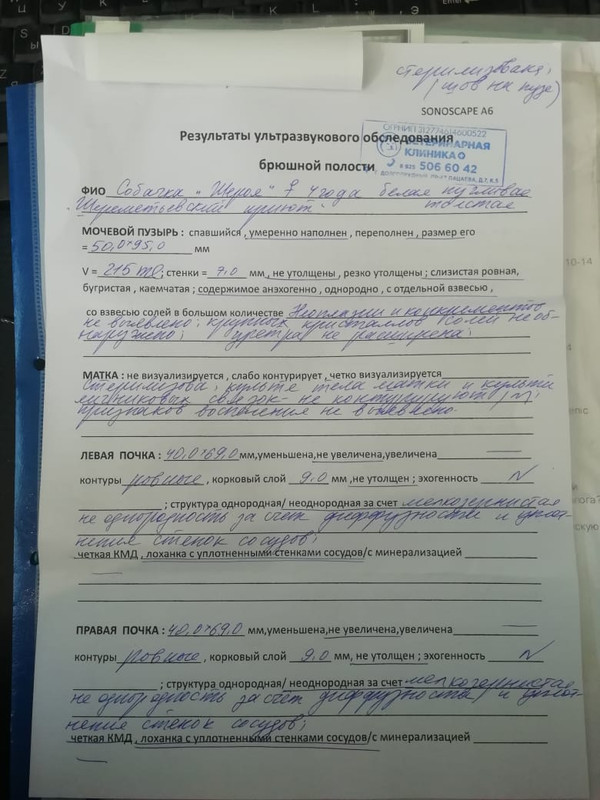 стерилизована,
(шов на пузе)
SONOSCAPE A6
Результаты ультразвукового обследования
брюшной полости
ОГРНИП 312774614600522
ВЕТЕРИНАРНАЯ
КЛИНИКА
506 60 42
ФИО Собачка "Шуня" 4 года белая пугливая
Шереметьевский приют толстая
МОЧЕВОЙ ПУЗЫРЬ : спавшийся , умеренно наполнен , переполнен , размер его
= 50,0*95,0 мм
V = 215 ml ; стенки = 7,0 мм , не утолщены , резко утолщены ; слизистая ровная,
бугристая , каемчатая ; содержимое анэхогенно , однородно , с отдельной взвесью ,
со взвесью солей в большом количестве Неоплазии и конкрементов
не выявлено; крупных кристаллов солей не об-
наружено; уретра не расширена;
МАТКА : не визуализируется , слабо контурирует , четко визуализируется
Стерилизова, культе тела матки и культи
яичниковых связок - не контурируют (N),
признаков воспаления не выявлено.
ЛЕВАЯ ПОЧКА : 40,0*69,0 мм,уменьшена,не увеличена,увеличена
контуры ровные , корковый слой 9,0 мм ,не утолщен ; эхогенность N
; структура однородная/ неоднородная за счет мелкозернистая
не однородность за счет диффузности и уплот-
нения стенок сосудов;
четкая КМД , лоханка с уплотненными стенками сосудов/с минерализацией
ПРАВАЯ ПОЧКА : 40,0*69,0 мм,уменьшена,не увеличена,увеличена
контуры ровные , корковый слой 9,0 мм, не утолщен ; эхогенность N
; структура однородная/ неоднородная за счет мелкозернистая
не однородность за счет диффузности и уплот-
нение стенок сосудов;
четкая КМД , лоханка с уплотненными стенками сосудов/с минерализацией